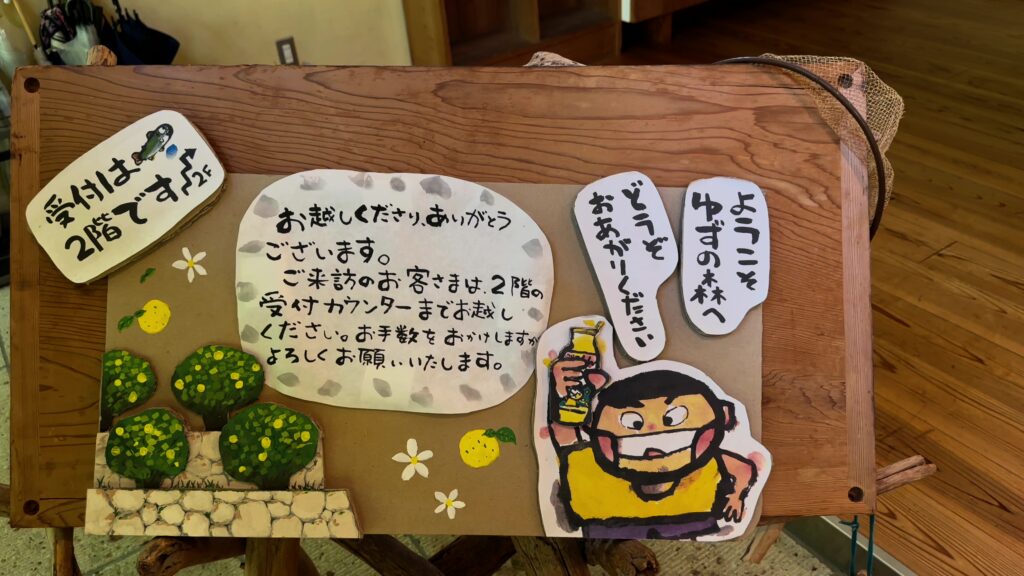 受付は
2階です
2F
お越しくださり、ありがとう
ございます。
ご来訪のお客さまは、2階の
受付カウンターまでお越し
ください。お手数をおかけしますが
よろしくお願いいたします。
ようこそ
ゆずの森へ
どうぞ
おあがりください